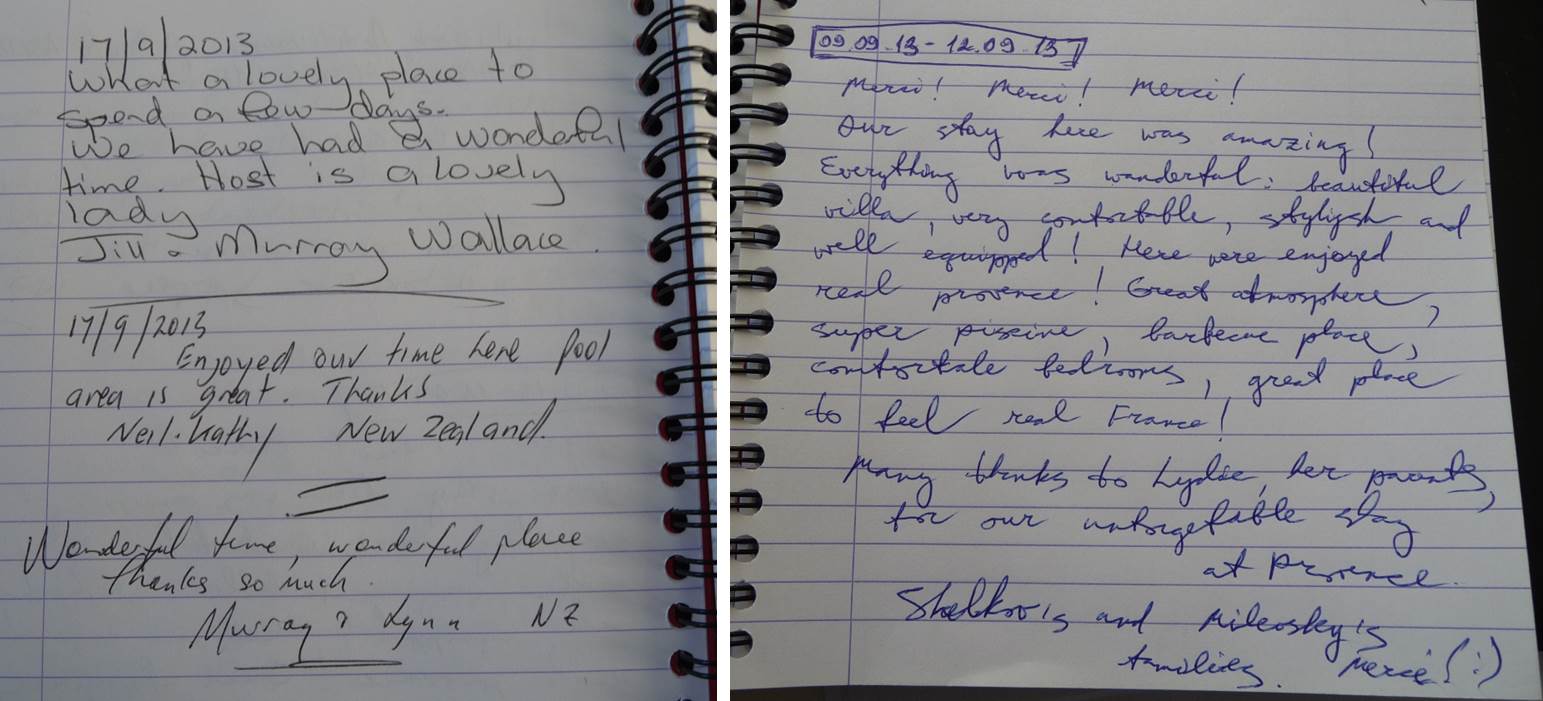 17/9/2013
What a lovely place to
spend a few days.
We have had a wonderful
time. Host is a lovely
lady
Jill & Murray Wallace.
17/9/2013
Enjoyed our time here Pool
area is great. Thanks
Neil. Kathy New Zealand.
Wonderful time, wonderful place
thanks so much.
Murray & Lynn NZ
09.09.13 - 12.09.13
Merci! Merci! Merci!
Our stay here was amazing!
Everything was wanderful: beautiful
villa, very comfortable, stylijsh and
well equipped! Here were enjoyed
real provence! Great atmosphere,
super piscine, barbecue place,
comfortale bedrooms, great place
to feel real France!
Many thanks to Lydie, her parents,
for our unforgetable stay
at Provence.
and
families. Merci! (:)